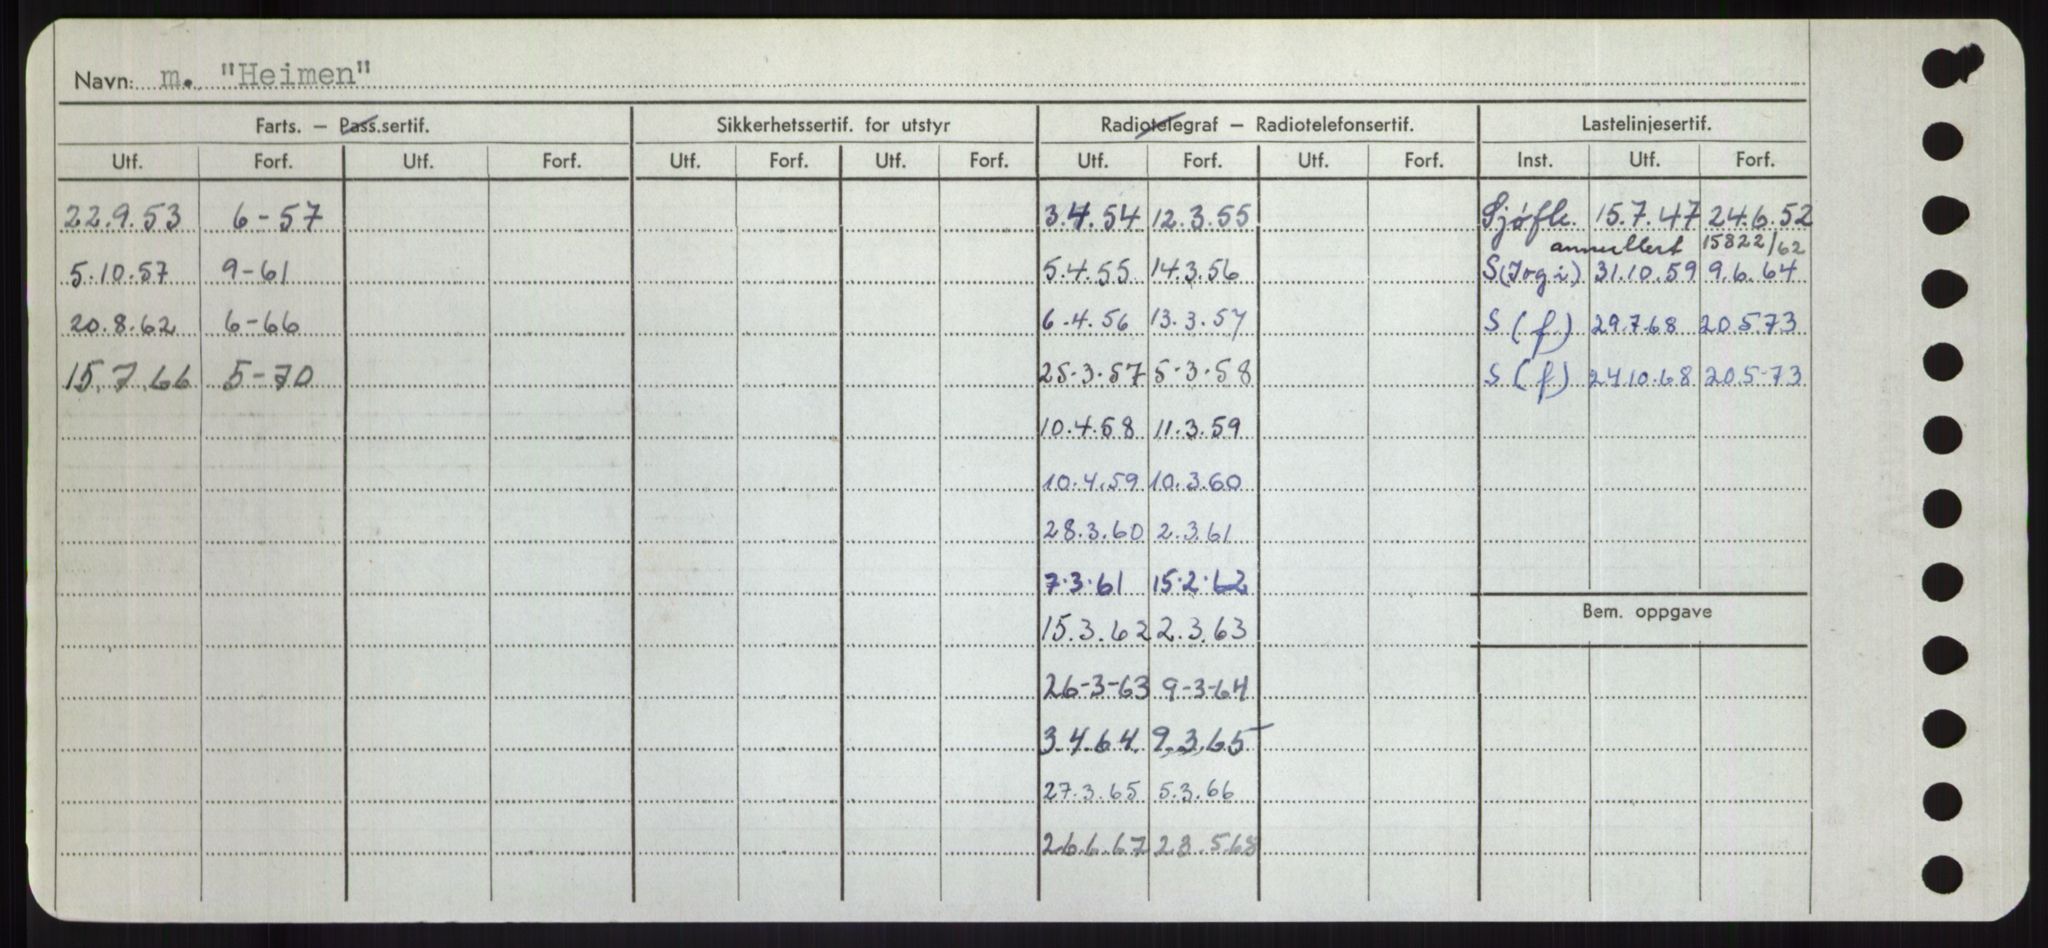 Navn: m. "Heimen"
Farts. – Pass.sertif. Sikkerhetssertif. for utstyr Radiotelegraf – Radiotelefonsertif. Lastelinjesertif.
Utf. Forf. Utf. Forf. Utf. Forf. Utf. Forf. Utf. Forf. Utf. Forf. Inst. Utf. Forf.
22.9.53 6-57 3.4.54 12.3.55 Sjøfk. 15.7.47 24.6.52
annullert 15822/62
5.10.57 9-61 5.4.55 14.3.56 S(Irgi) 31.10.59 9.6.64
20.8.62 6-66 6.4.56 13.3.57 S (f) 29.7.68 20.5.73
15.7.66 5-70 25.3.57 5.3.58 S (f) 24.10.68 20.5-73
10.4.58 11.3.59
10.4.59 10.3.60
28.3.60 2.3.61
7.3.61 15.2.62
Bem. oppgave
15.3.62 2.3.63
26-3-63 9-3-64
3.4.64 9.3.65
27.3.65 5.3.66
26.6.67 28.5.68